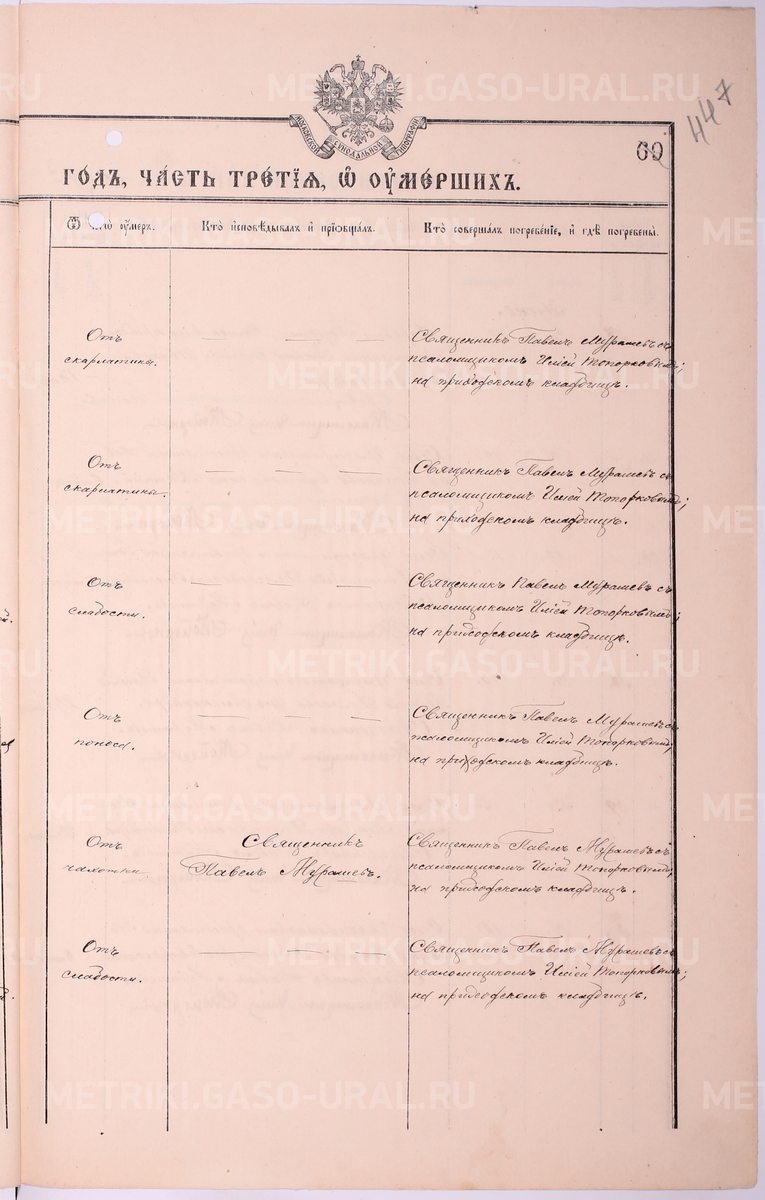 METRIKI.GASO-URAL.RU
447
МОСКОВСКОЙ СѴНОДАЛЬНОЙ ТИПОГРАФІИ
60
ГО́ДЪ, ЧА́СТЬ ТРЕ́ТЇѦ, Ѡ҆ ОУ҆МЕ́РШИХЪ.
Ѿ чегѡ̀ оу҆́меръ.
Кто̀ и҆сповѣ́дывалъ и҆ прїѡбща́лъ.
Кто̀ соверша́лъ погребе́нїе, и҆ гдѣ̀ погребены̀.
Отъ
скарлатины.
— — —
Священникъ Павелъ Мурашевъ съ
псаломщикомъ Иліей Топорковымъ;
на приходскомъ кладбищѣ.
Отъ
скарлатины.
— — —
Священникъ Павелъ Мурашевъ съ
псаломщикомъ Иліей Топорковымъ;
на приходскомъ кладбищѣ.
Отъ
слабости.
— — —
Священникъ Павелъ Мурашевъ съ
псаломщикомъ Иліей Топорковымъ;
на приходскомъ кладбищѣ.
Отъ
поноса.
— — —
Священникъ Павелъ Мурашевъ съ
псаломщикомъ Иліей Топорковымъ;
на приходскомъ кладбищѣ.
Отъ
чахотки.
Священникъ
Павелъ Мурашевъ.
Священникъ Павелъ Мурашевъ съ
псаломщикомъ Иліей Топорковымъ;
на приходскомъ кладбищѣ.
Отъ
слабости.
— — —
Священникъ Павелъ Мурашевъ съ
псаломщикомъ Иліей Топорковымъ;
на приходскомъ кладбищѣ.